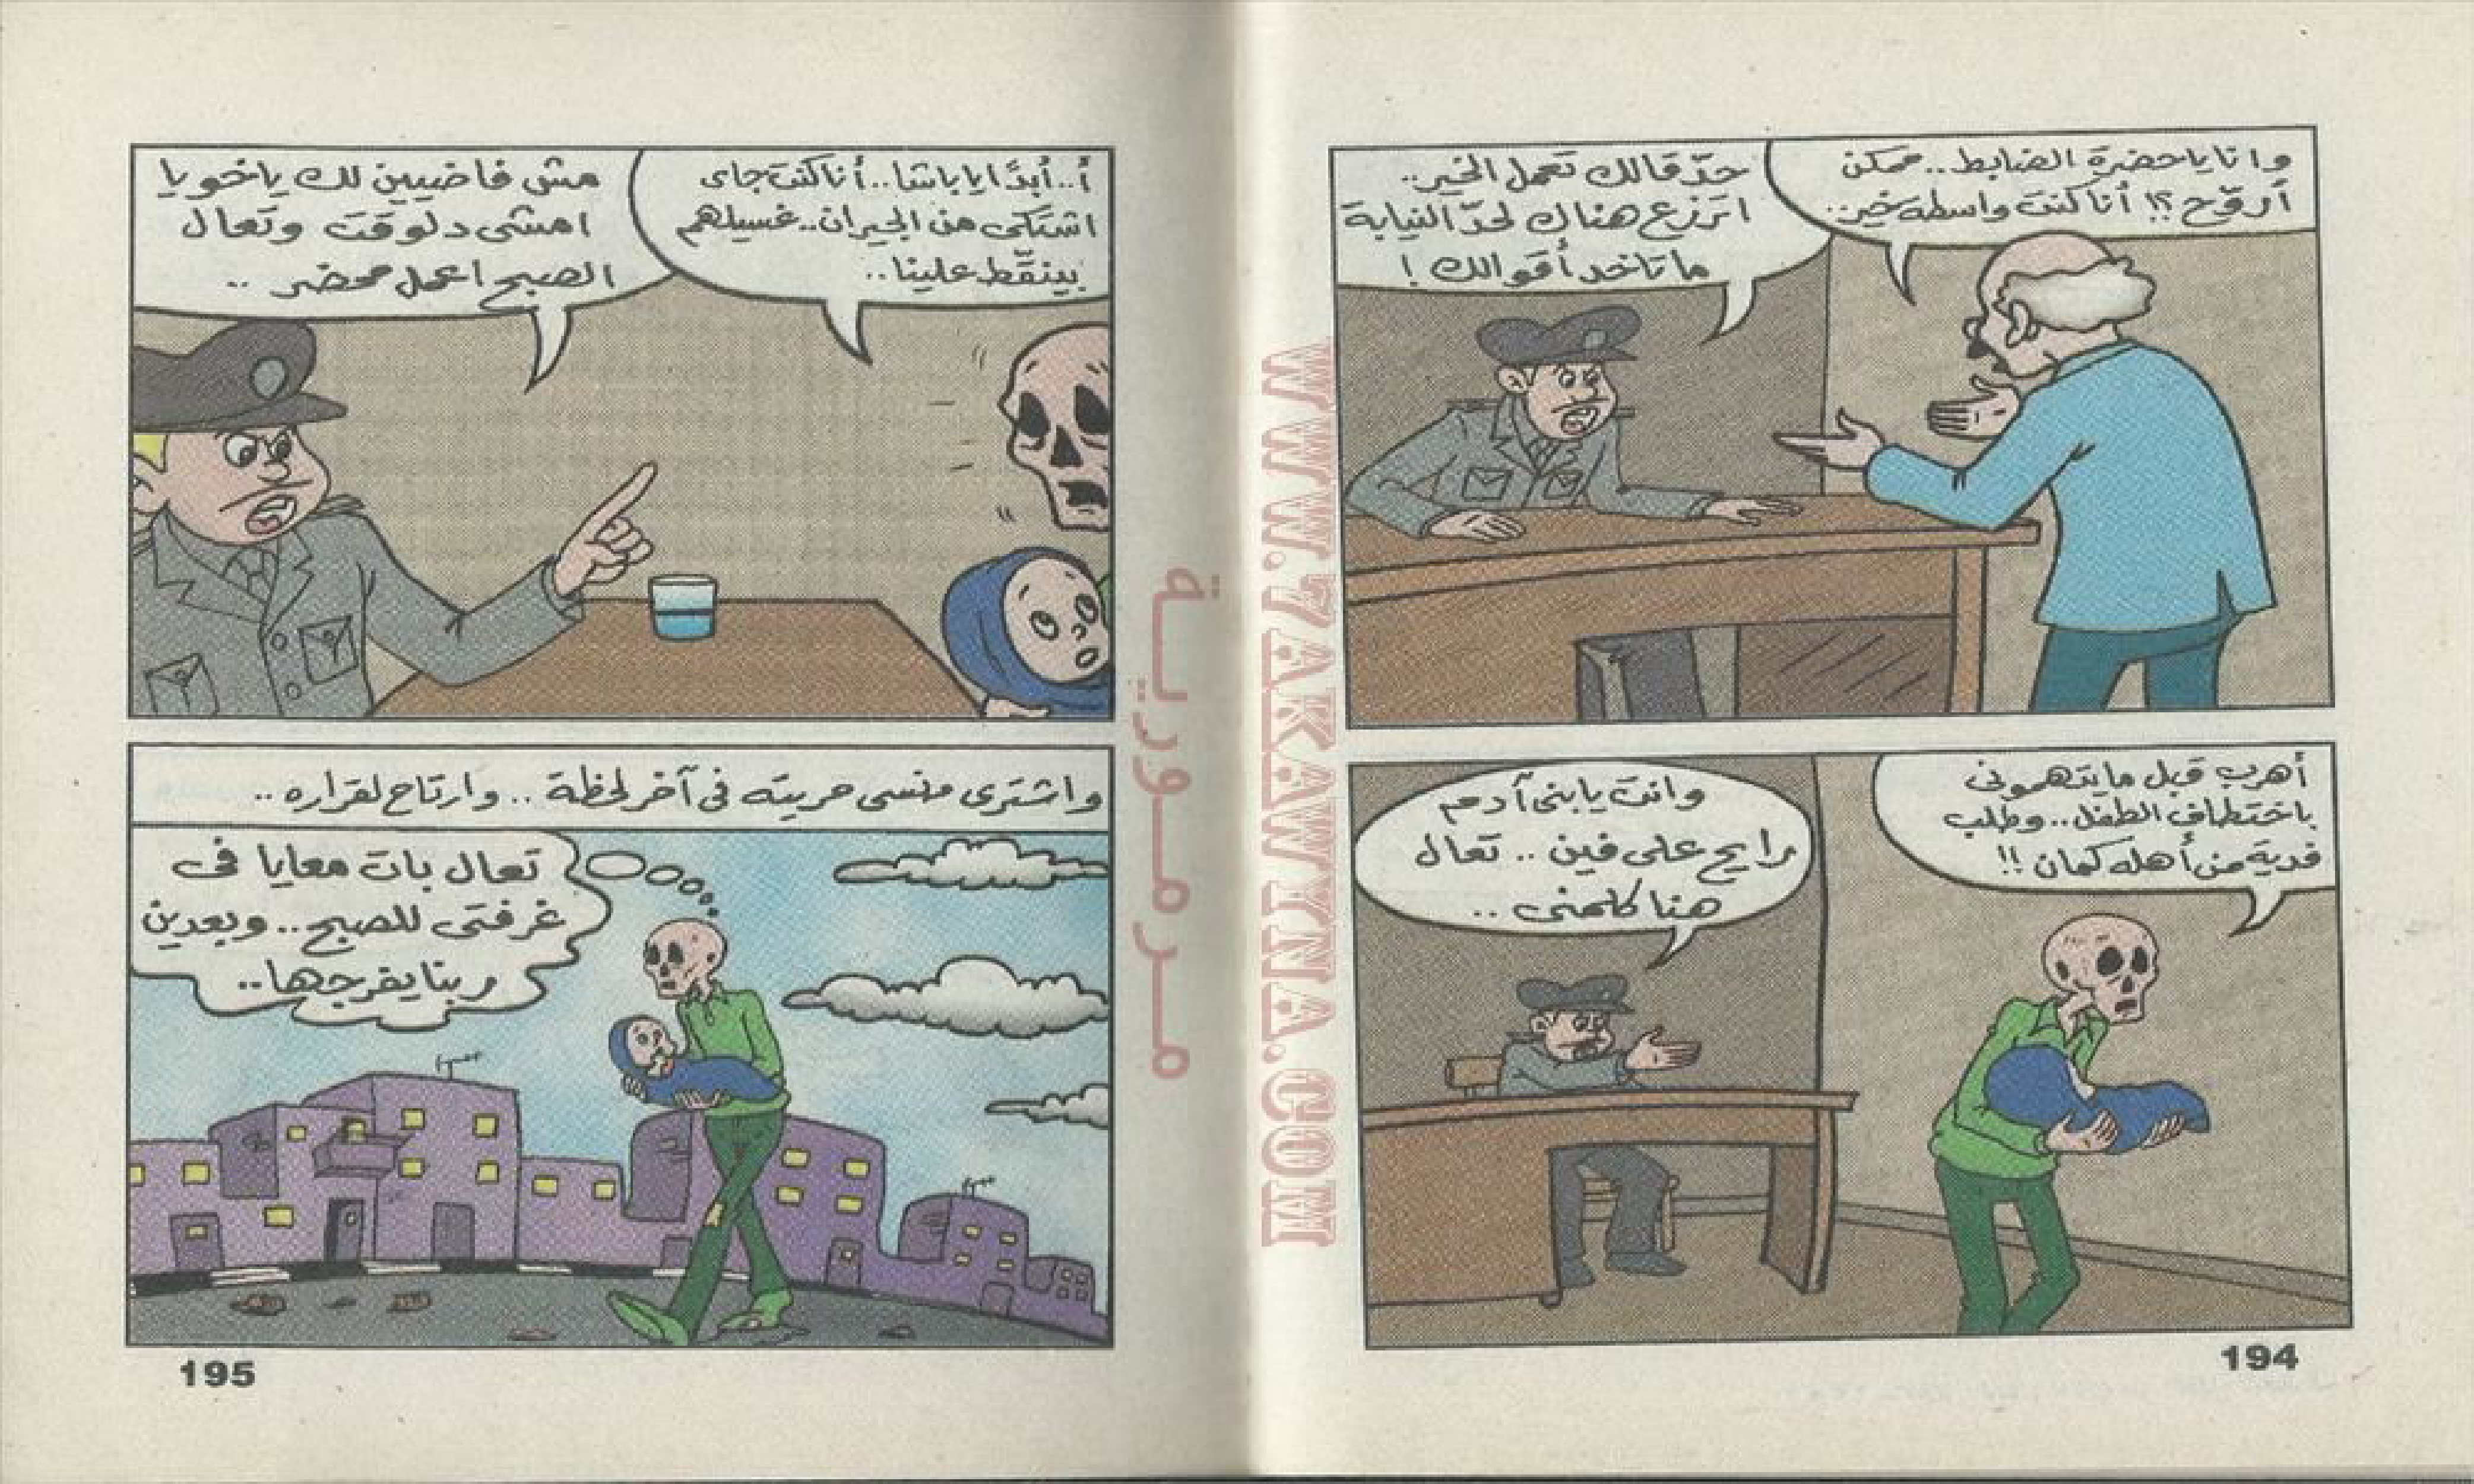 وانا يا حضرة الضابط.. ممكن
أروّح ؟! أنا كنت واسطة خير..
حدّ قالك تعمل الخير..
اترزع هناك لحدّ النيابة
ما تاخد أقوالك !
أهرب قبل ما يتهمونى
باختطاف الطفل.. وطلب
فدية من أهله كمان !!
وانت يا بنى آدم
رايح على فين .. تعال
هنا كلمنى ..
194
أ.. أبدًا يا باشا.. أنا كنت جاى
اشتكى من الجيران.. غسيلهم
بينقّط علينا..
مش فاضيين لك ياخويا
امشى دلوقت وتعال
الصبح اعمل محضر ..
واشترى منسى حريته فى آخر لحظة .. وارتاح لقراره ..
تعال بات معايا فى
غرفتى للصبح.. وبعدين
ربنا يفرجها..
195
مرمورية
WWW.7AKAWYNA.COM